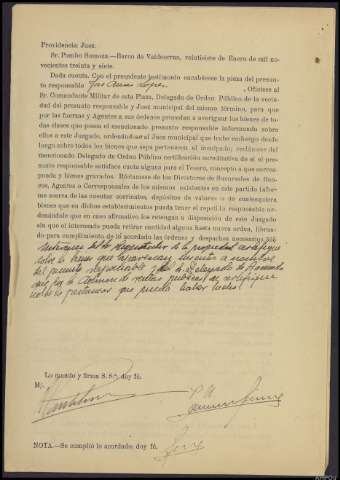 Providencia Juez.
Sr. Pumbo Somoza.—Barco de Valdeorras, veintisiete de Enero de mil no-
vecientos treinta y siete.
Dada cuenta. Con el precedente testimonio encabécese la pieza del presun-
to responsable José Arias López . Ofíciese al
Sr. Comandante Militar de esta Plaza, Delegado de Orden Público de la vecin-
dad del presunto responsable y Juez municipal del mismo término, para que
por las fuerzas y Agentes a sus órdenes procedan a averiguar los bienes de to-
das clases que posea el mencionado presunto responsable informando sobre
ellos a este Juzgado, ordenándose al Juez municipal que trabe embargo desde
luego sobre todos los bienes que sepa pertenecen al inculpado; recábese del
mencionado Delegado de Orden Público certificación acreditativa de si el pre-
sunto responsable satisface cuota alguna para el Tesoro, concepto a que corres-
ponda y bienes gravados. Recábese de los Directores de Sucursales de Ban-
cos, Agentes o Corresponsales de los mismos existentes en este partido infor-
me acerca de las cuentas corrientes, depósitos de valores o de cualesquiera
bienes que en dichos establecimientos pueda tener el repetido responsable or-
denándole que en caso afirmativo los retengan a disposición de este Juzgado
sin que el interesado pueda retirar cantidad alguna hasta nueva orden, librán-
dose para cumplimiento de lo acordado las órdenes y despachos necesarios
del Registrador de la propiedad certifique
sobre los bienes que aparezcan inscritos a nombre
del presunto responsable y del Sr. Delegado de Hacienda
que por la Admon de rentas públicas se certifique
que pueda haber hecho.
Lo mandó y firma S. Sª. doy fé.
NOTA.—Se cumplió lo acordado; doy fé.